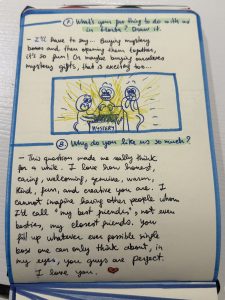 7. What's your fav thing to do with us
in Florida? Draw it.
- I'll have to say... Buying mystery
boxes and then opening them together,
it's so fun! Or maybe buying ourselves
mystery gifts, that is exciting too...
MYSTERY
8. Why do you like us so much?
- This question made me really think
for a while. I love how honest,
caring, welcoming, genuine, warm,
kind, fun, and creative you are. I
cannot imagine having other people whom
I'd call "my best friends", not even
besties, my closest friends. You
fill up whatever ever possible single
base one can only think about, in
my eyes, you guys are perfect.
I love you.